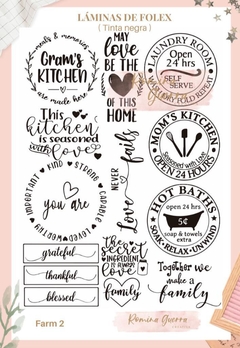 LÁMINAS DE FOLEX
( Tinta negra )
meals & memories
Gram's
KITCHEN
made here
MAY
love
BE THE
OF THIS
HOME
LAUNDRY ROOM
Open
24 hrs
SELF
SERVE
WASH DRY FOLD REPEAT
This
kitchen
is seasoned
with
love
MOM'S KITCHEN
Seasoned with love
OPEN 24 HOURS
KIND STRONG CAPABLE WORTHY LOVED IMPORTANT
you are
Love
NEVER
fails
HOT BATHS
open 24 hrs
5¢
soap & towels
extra
SOAK·RELAX·UNWIND
grateful
thankful
blessed
The secret
INGREDIENT
is always
love
family
Together we
make a
family
Farm 2
Romina Guerra